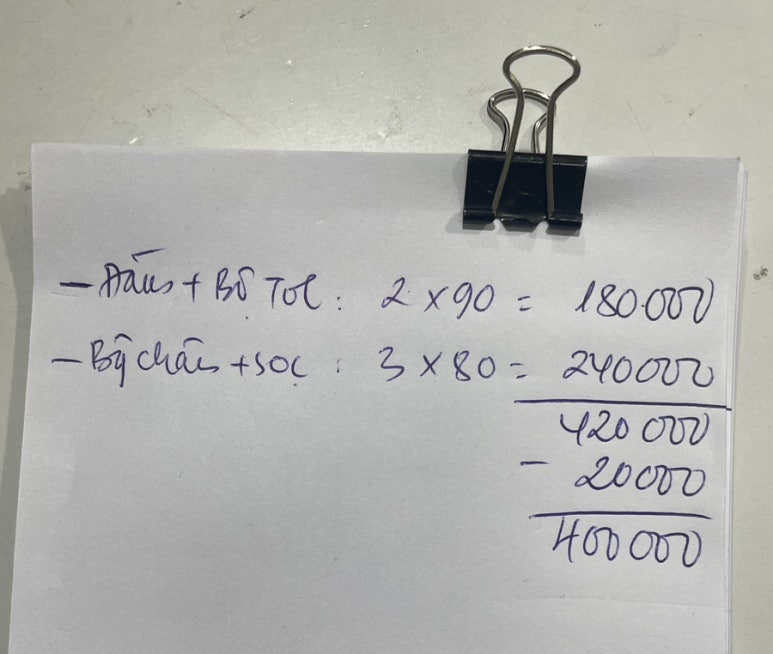 - + Bộ Tol : 2 x 90 = 180.000
- chân + sọc : 3 x 80 = 240000
420 000
- 20000
400 000